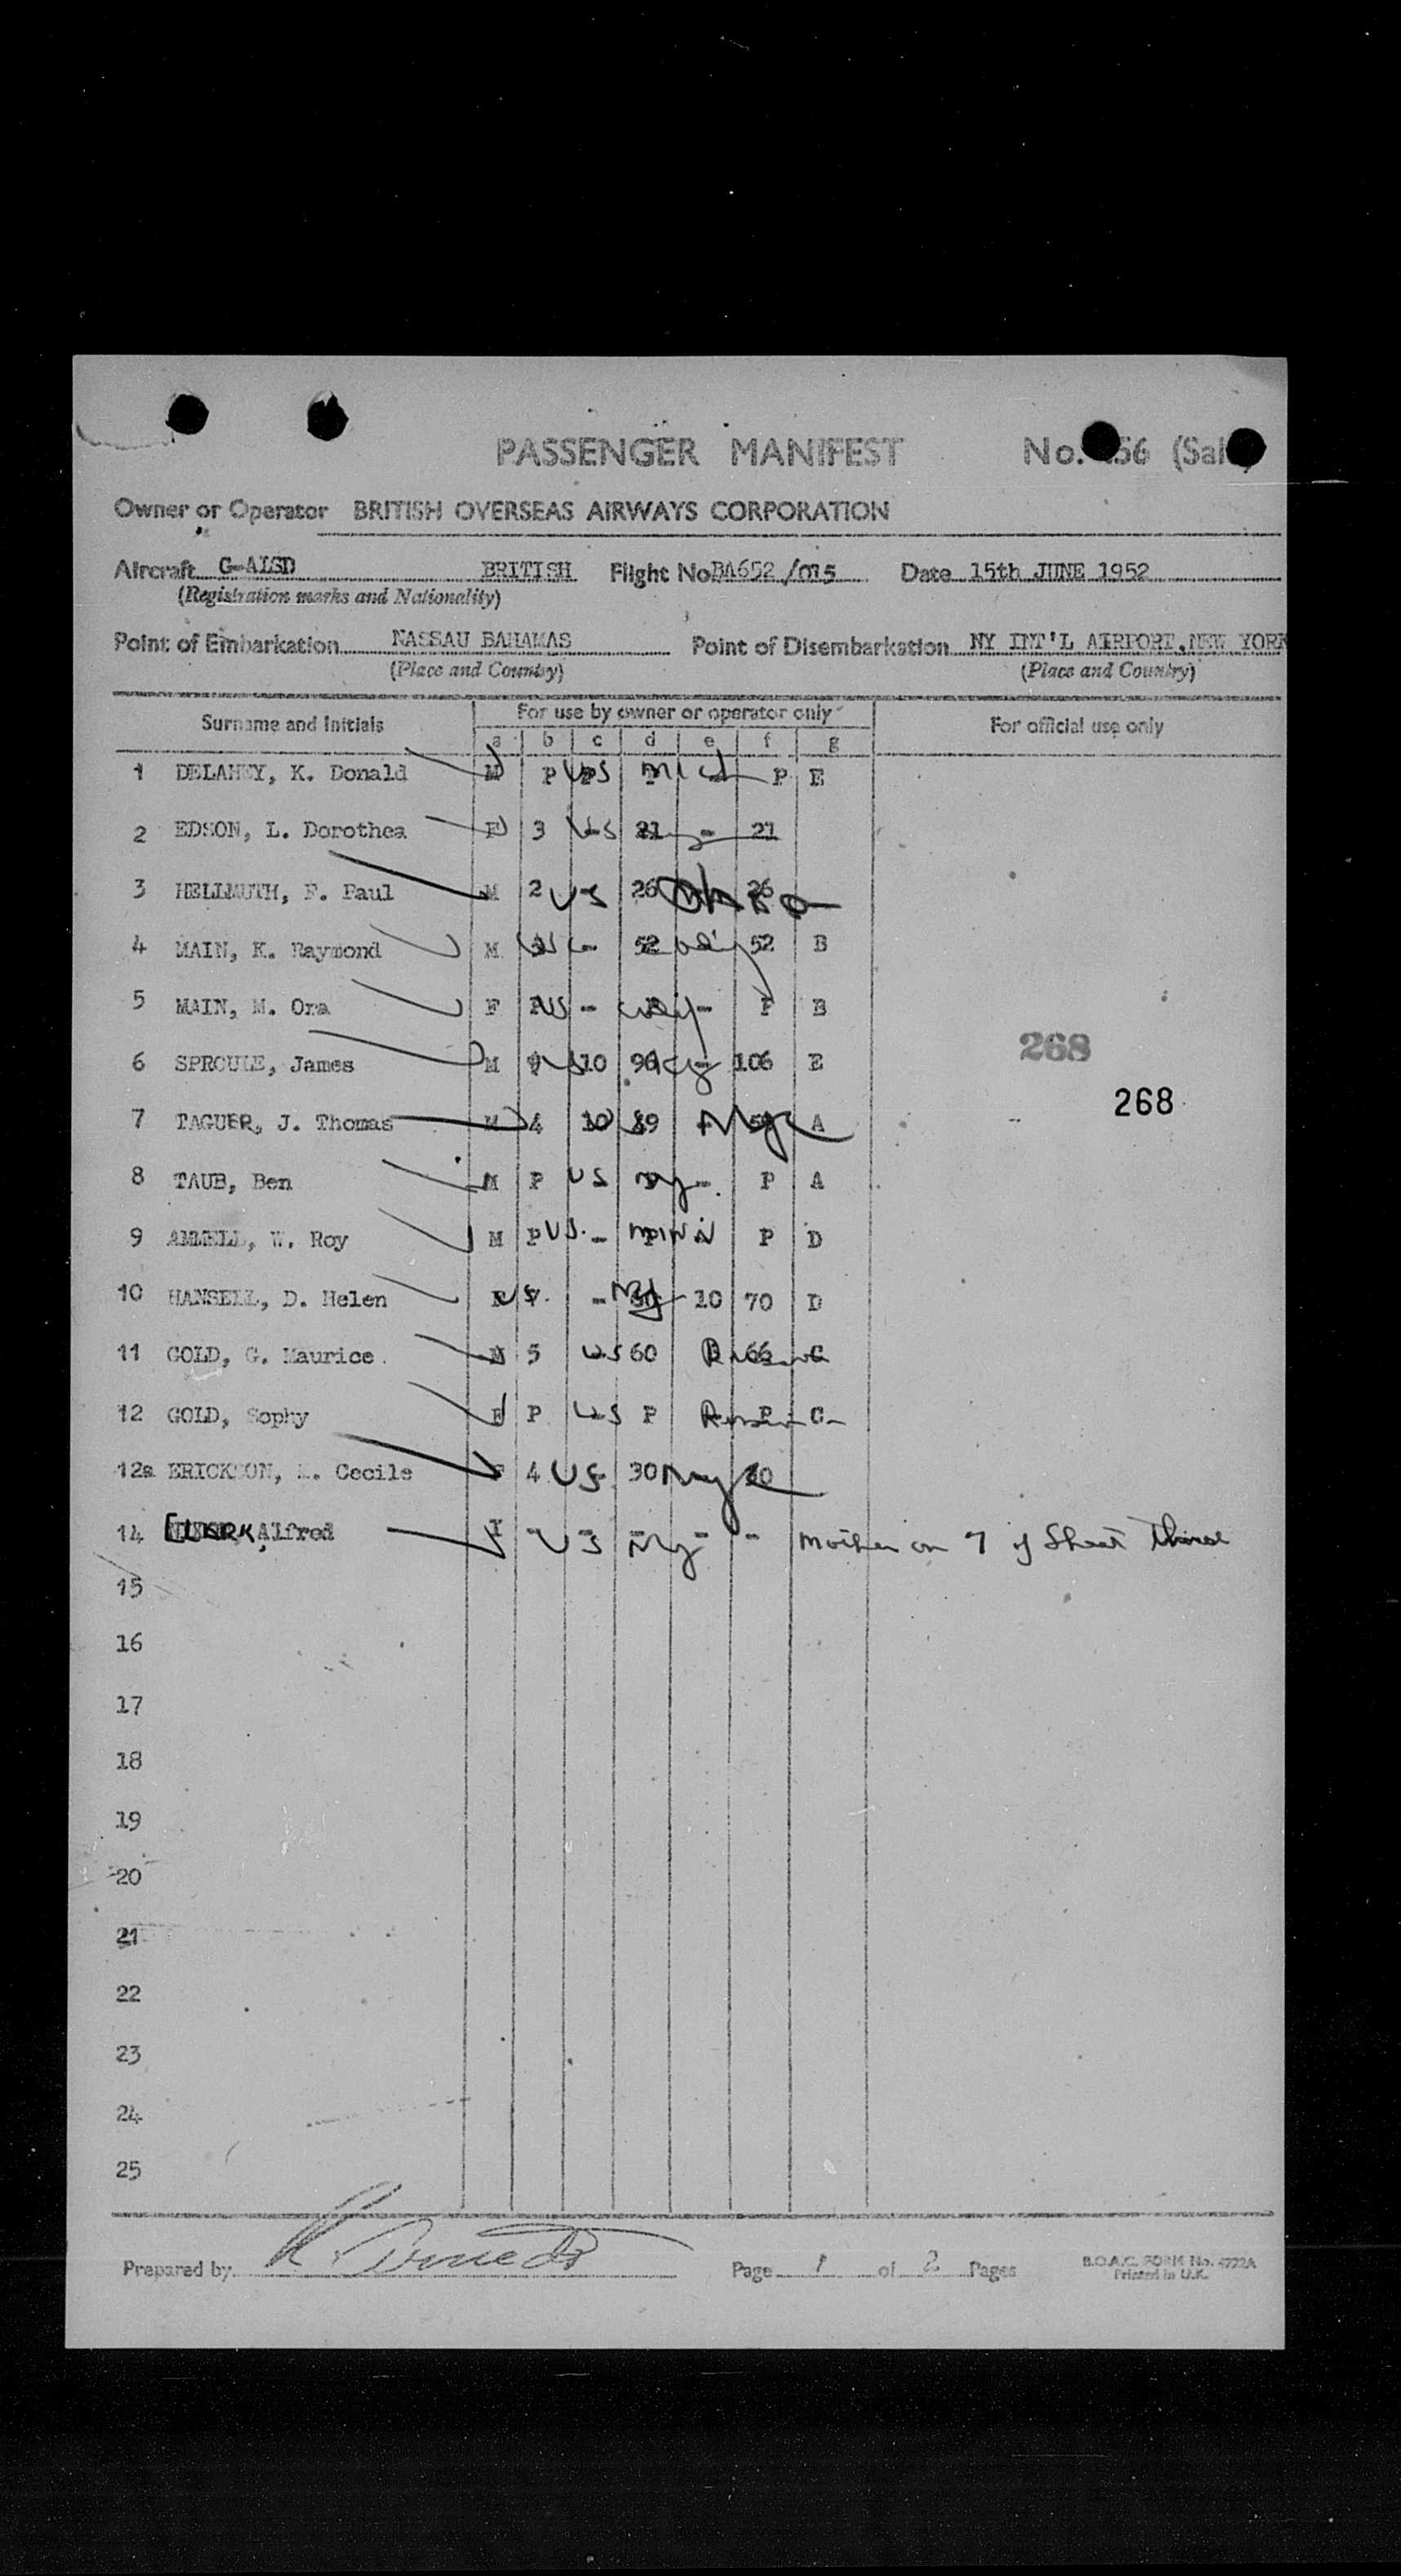 PASSENGER MANIFEST No. 56
Owner or Operator BRITISH OVERSEAS AIRWAYS CORPORATION
Aircraft G-ALSD BRITISH Flight No. BA652/015 Date 15th JUNE 1952
(Registration marks and Nationality)
Point of Embarkation NASSAU BAHAMAS Point of Disembarkation NY INT'L AIRPORT, NEW YORK
(Place and Country) (Place and Country)
Surname and Initials For use by owner or operator only For official use only
a b c d e f g
1 DELAHEY, K. Donald M P US Mich P E
2 EDSON, L. Dorothea F 3 US 21 - 21
3 HELLMUTH, F. Paul M 2 US 26 Ohio 26
4 MAIN, K. Raymond M US - 52 52 B
5 MAIN, M. Ora F US - - P B
6 SPROULE, James M 10 106 E
7 TAGUER, J. Thomas M 4 10 NYC A
8 TAUB, Ben M P US NY - P A
9 W. Roy M P US - MINN P D
10 HANSELL, D. Helen US - NY 10 70 D
11 GOLD, G. Maurice M 5 US 60 66 C
12 GOLD, Sophy F P US P P C
12a ERICKSON, Cecile F 4 US 30 NYC
14 CLARK, Alfred I - US - NY - - Mother on 7 of Sheet three
268
268
15
16
17
18
19
20
21
22
23
24
25
Prepared by Page 1 of 2 Pages
B.O.A.C. FORM No. 4722A
Printed in U.K.